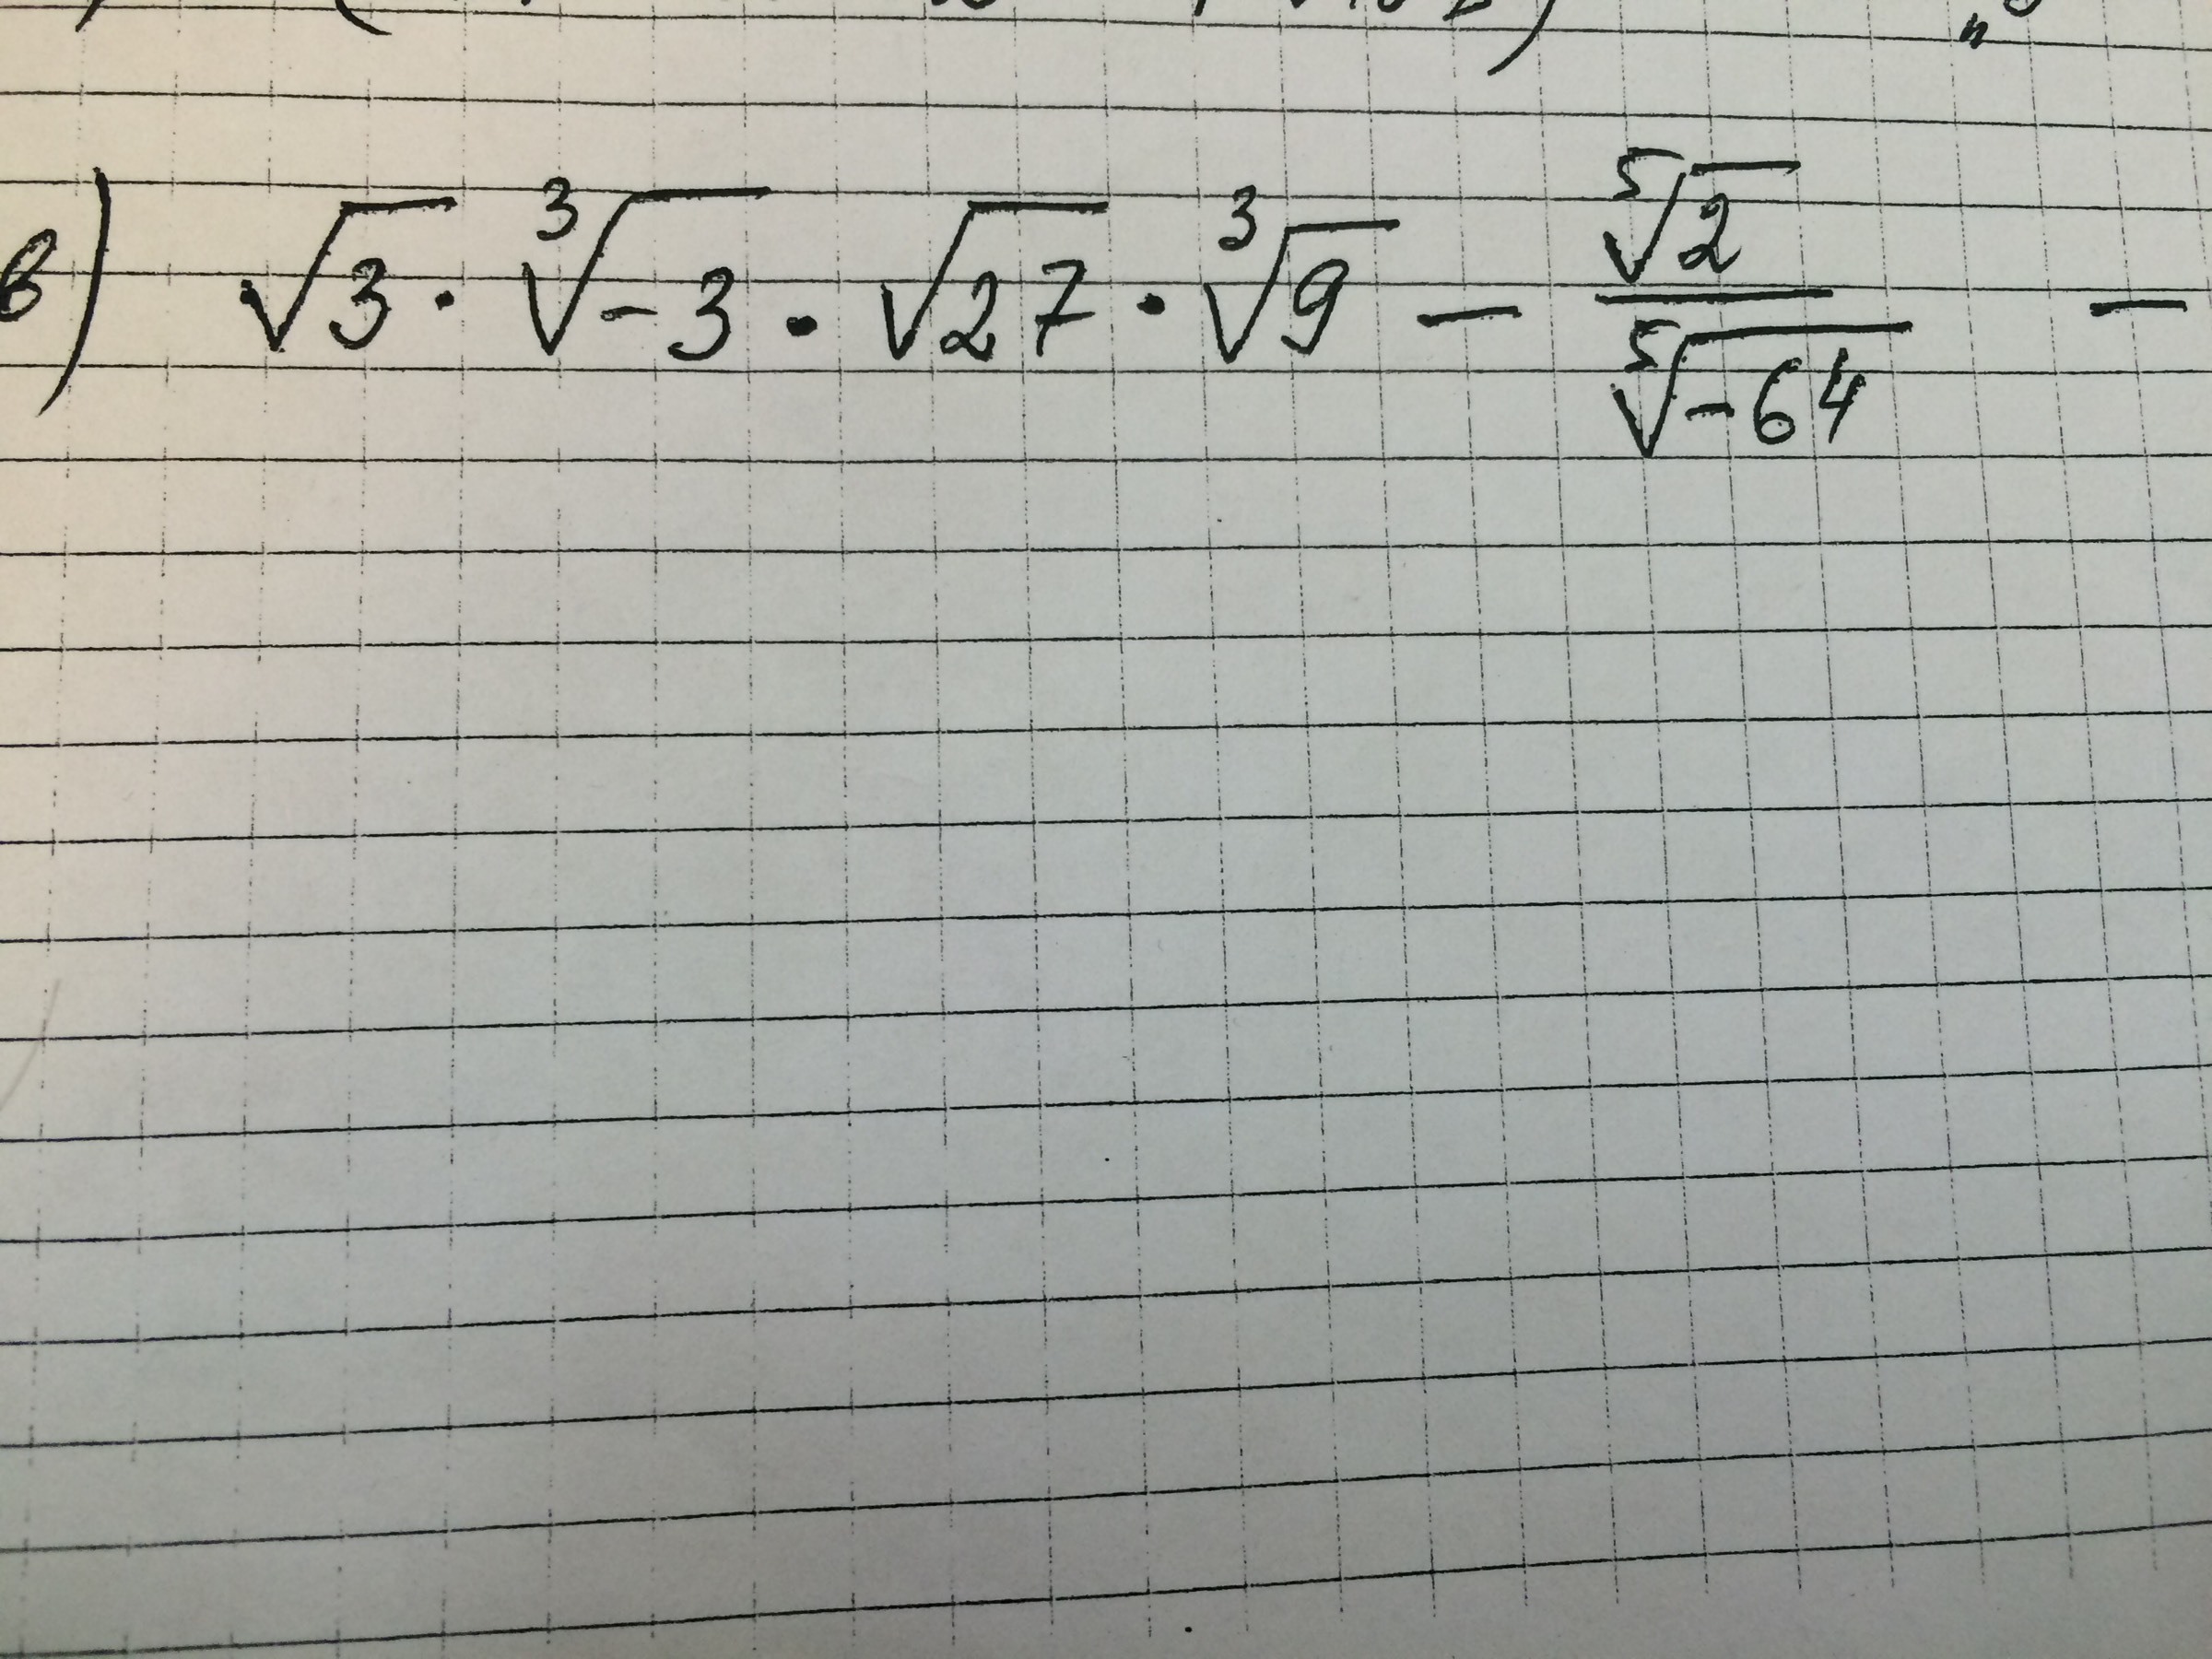 в) √3 · ³√-3 · √27 · ³√9 − ⁵√2 / ⁵√-64 −